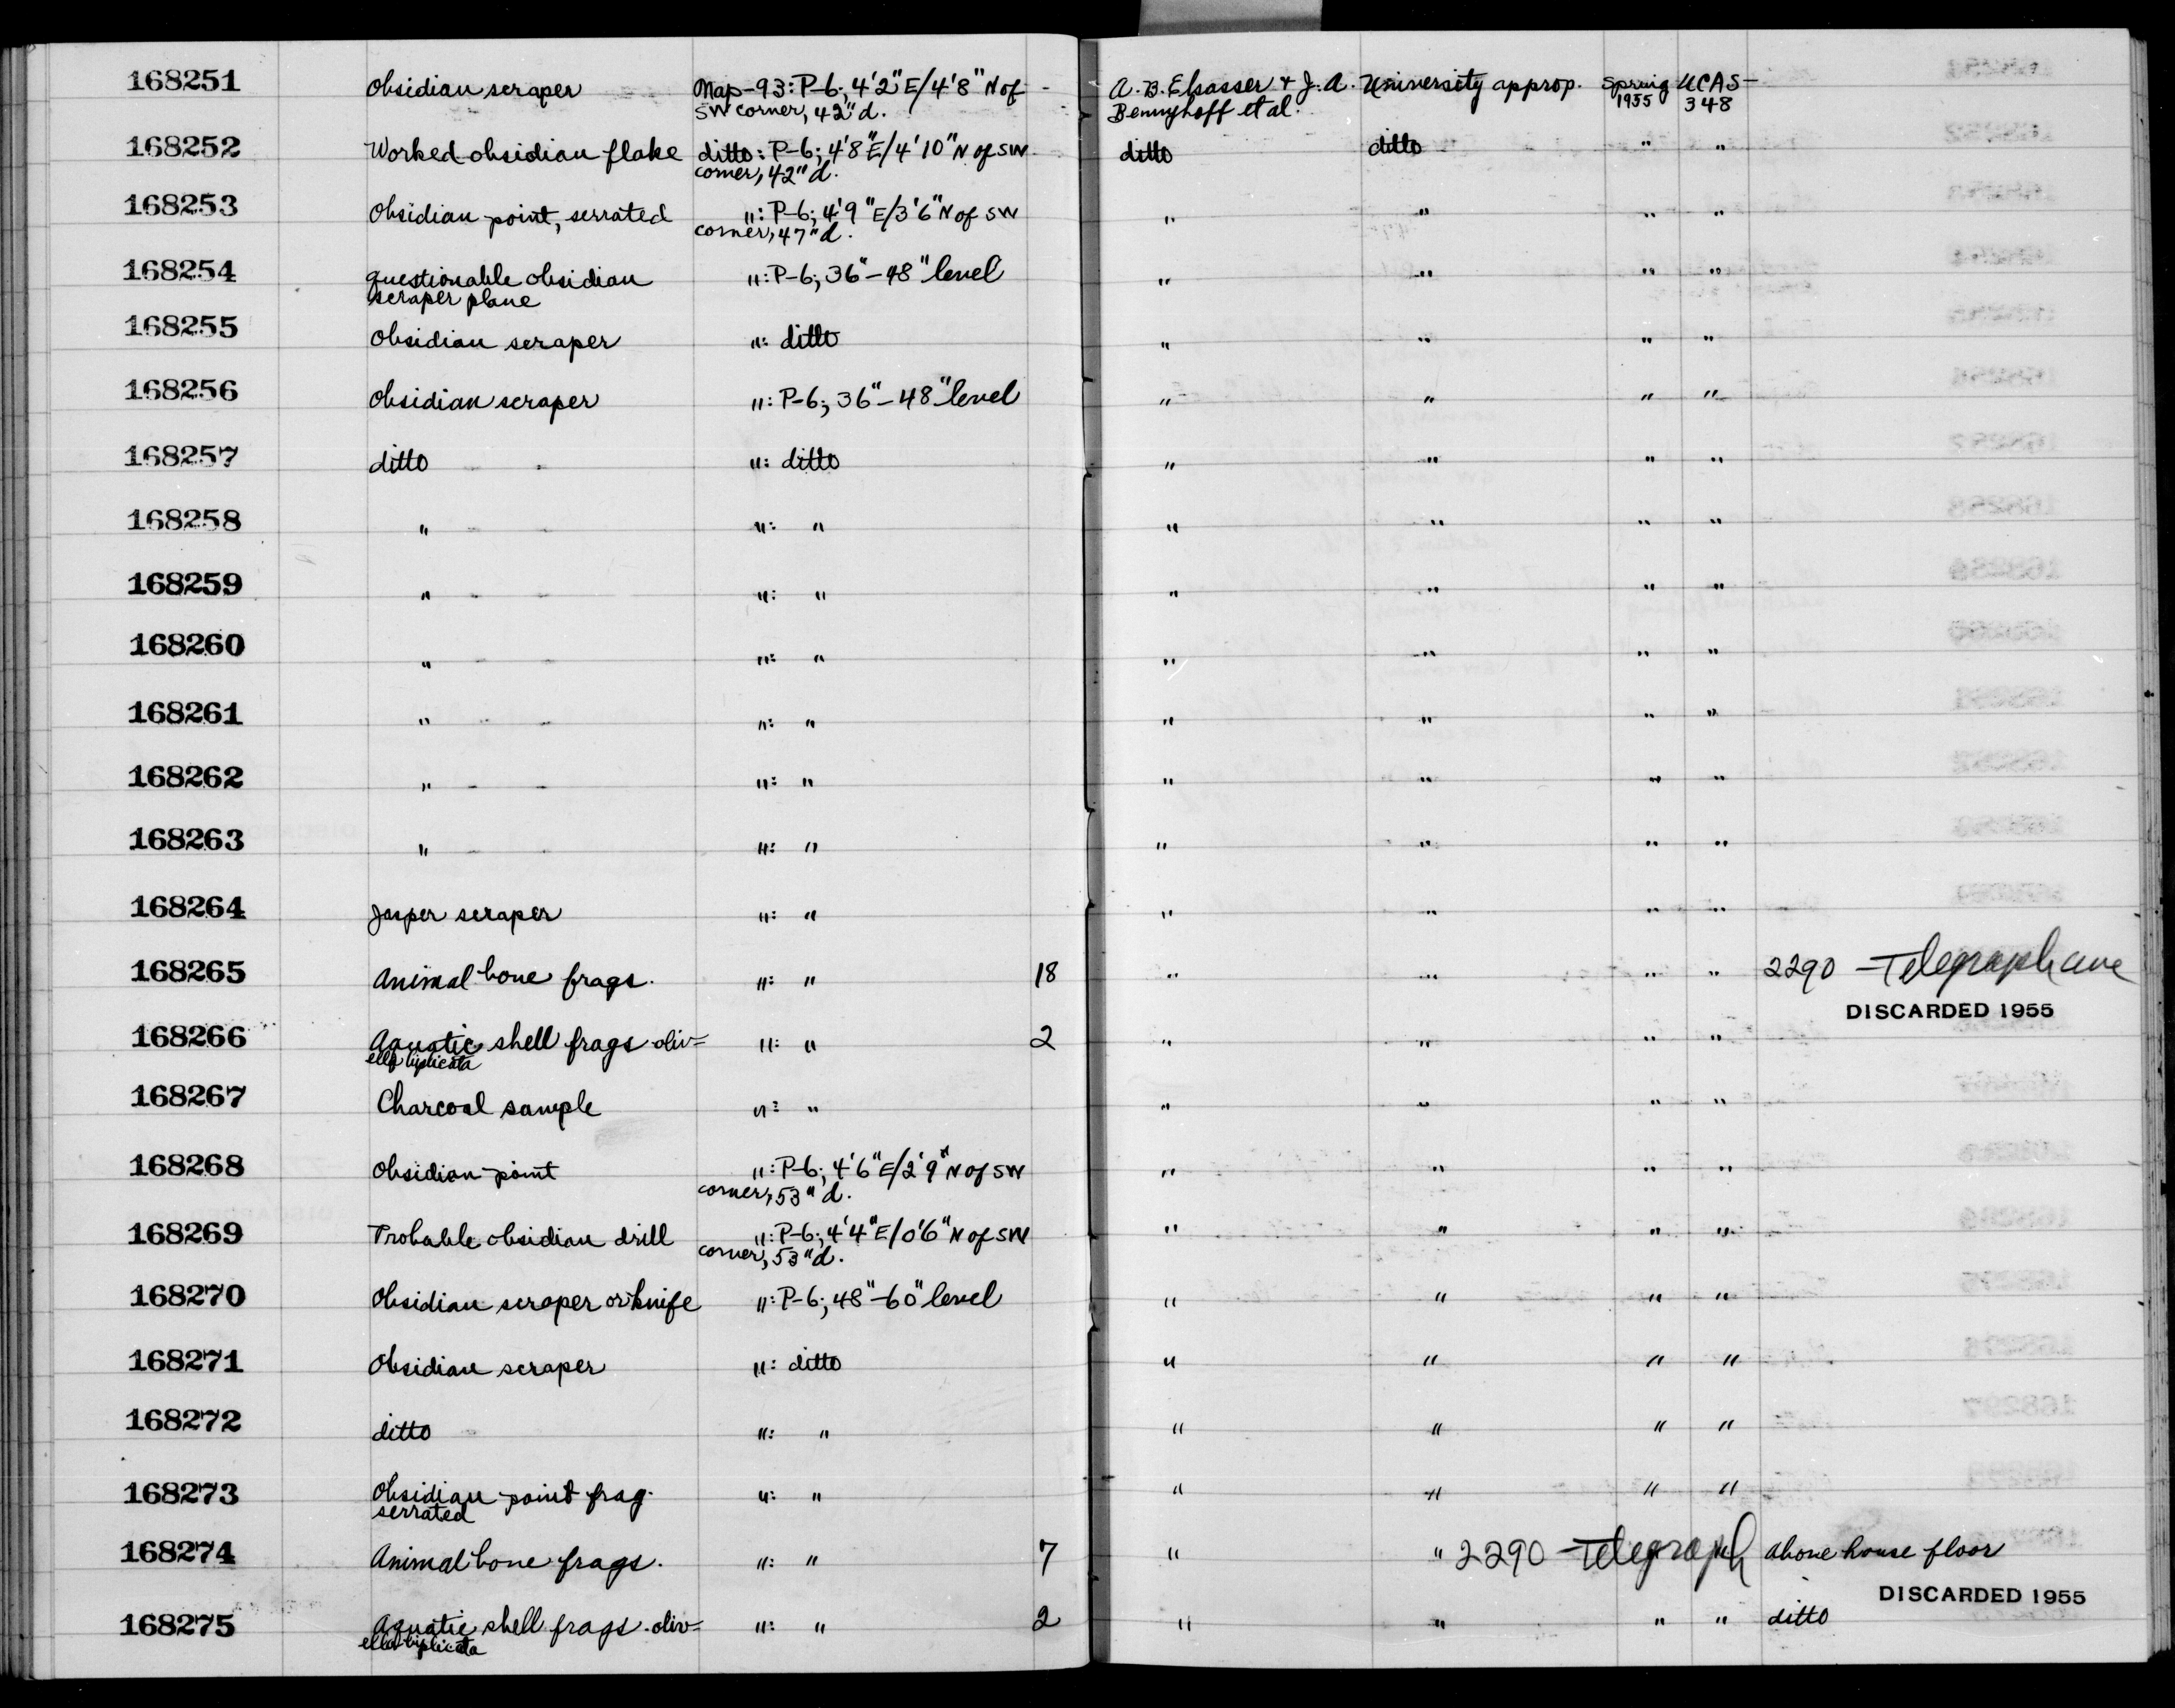 168251 Obsidian scraper Nap-93: P-6; 4'2" E/4'8" N of A. B. Elsasser & J. A. University approp. Spring UCAS-
SW corner, 42" d. Bennyhoff et al. 1955 348
168252 Worked obsidian flake ditto: P-6; 4'8" E/4'10" N of SW ditto ditto " "
corner, 42" d.
168253 Obsidian point, serrated ": P-6; 4'9" E/3'6" N of SW " " " "
corner, 47" d.
168254 questionable obsidian ": P-6; 36"-48" level " " " "
scraper plane
168255 Obsidian scraper ": ditto " " " "
168256 Obsidian scraper ": P-6; 36"-48" level " " " "
168257 ditto ": ditto " " " "
168258 " ": " " " " "
168259 " ": " " " " "
168260 " ": " " " " "
168261 " ": " " " " "
168262 " ": " " " " "
168263 " ": " " " " "
168264 Jasper scraper ": " " " " "
168265 Animal bone frags. ": " 18 " " " " 2290 Telegraph ave
DISCARDED 1955
168266 Aquatic shell frags oliv= ": " 2 " " " "
ella biplicata
168267 Charcoal sample ": " " " " "
168268 Obsidian point ": P-6; 4'6" E/2'9" N of SW " " " "
corner, 53" d.
168269 Probable obsidian drill ": P-6; 4'4" E/0'6" N of SW " " " "
corner, 53" d.
168270 Obsidian scraper or knife ": P-6; 48"-60" level " " " "
168271 Obsidian scraper ": ditto " " " "
168272 ditto ": " " " " "
168273 Obsidian point frag. ": " " " " "
serrated
168274 Animal bone frags. ": " 7 " " 2290 Telegraph above house floor
DISCARDED 1955
168275 Aquatic shell frags. oliv= ": " 2 " " " " ditto
ella biplicata